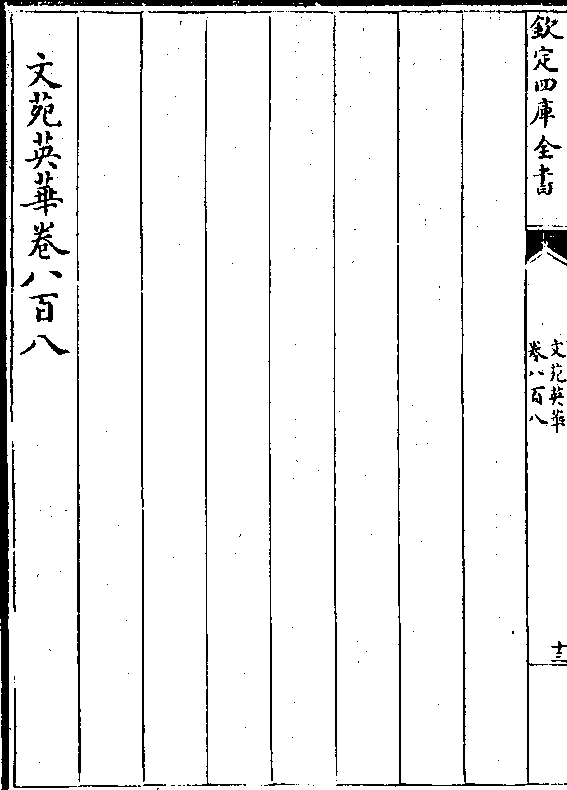 欽定四庫全書
文苑英華
卷八百八
十三
文苑英華卷八百八